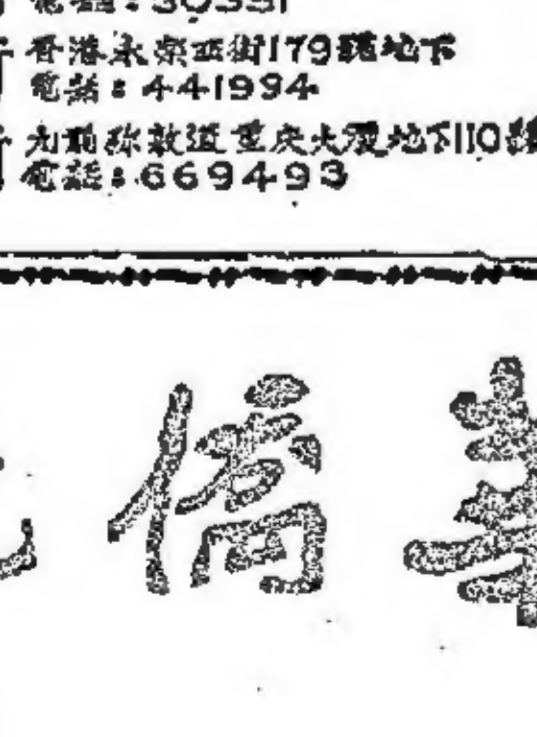 電話：30351
香港永樂西街179號地下
電話：441994
九龍弥敦道重庆大厦地下110號
電話：669493
華僑